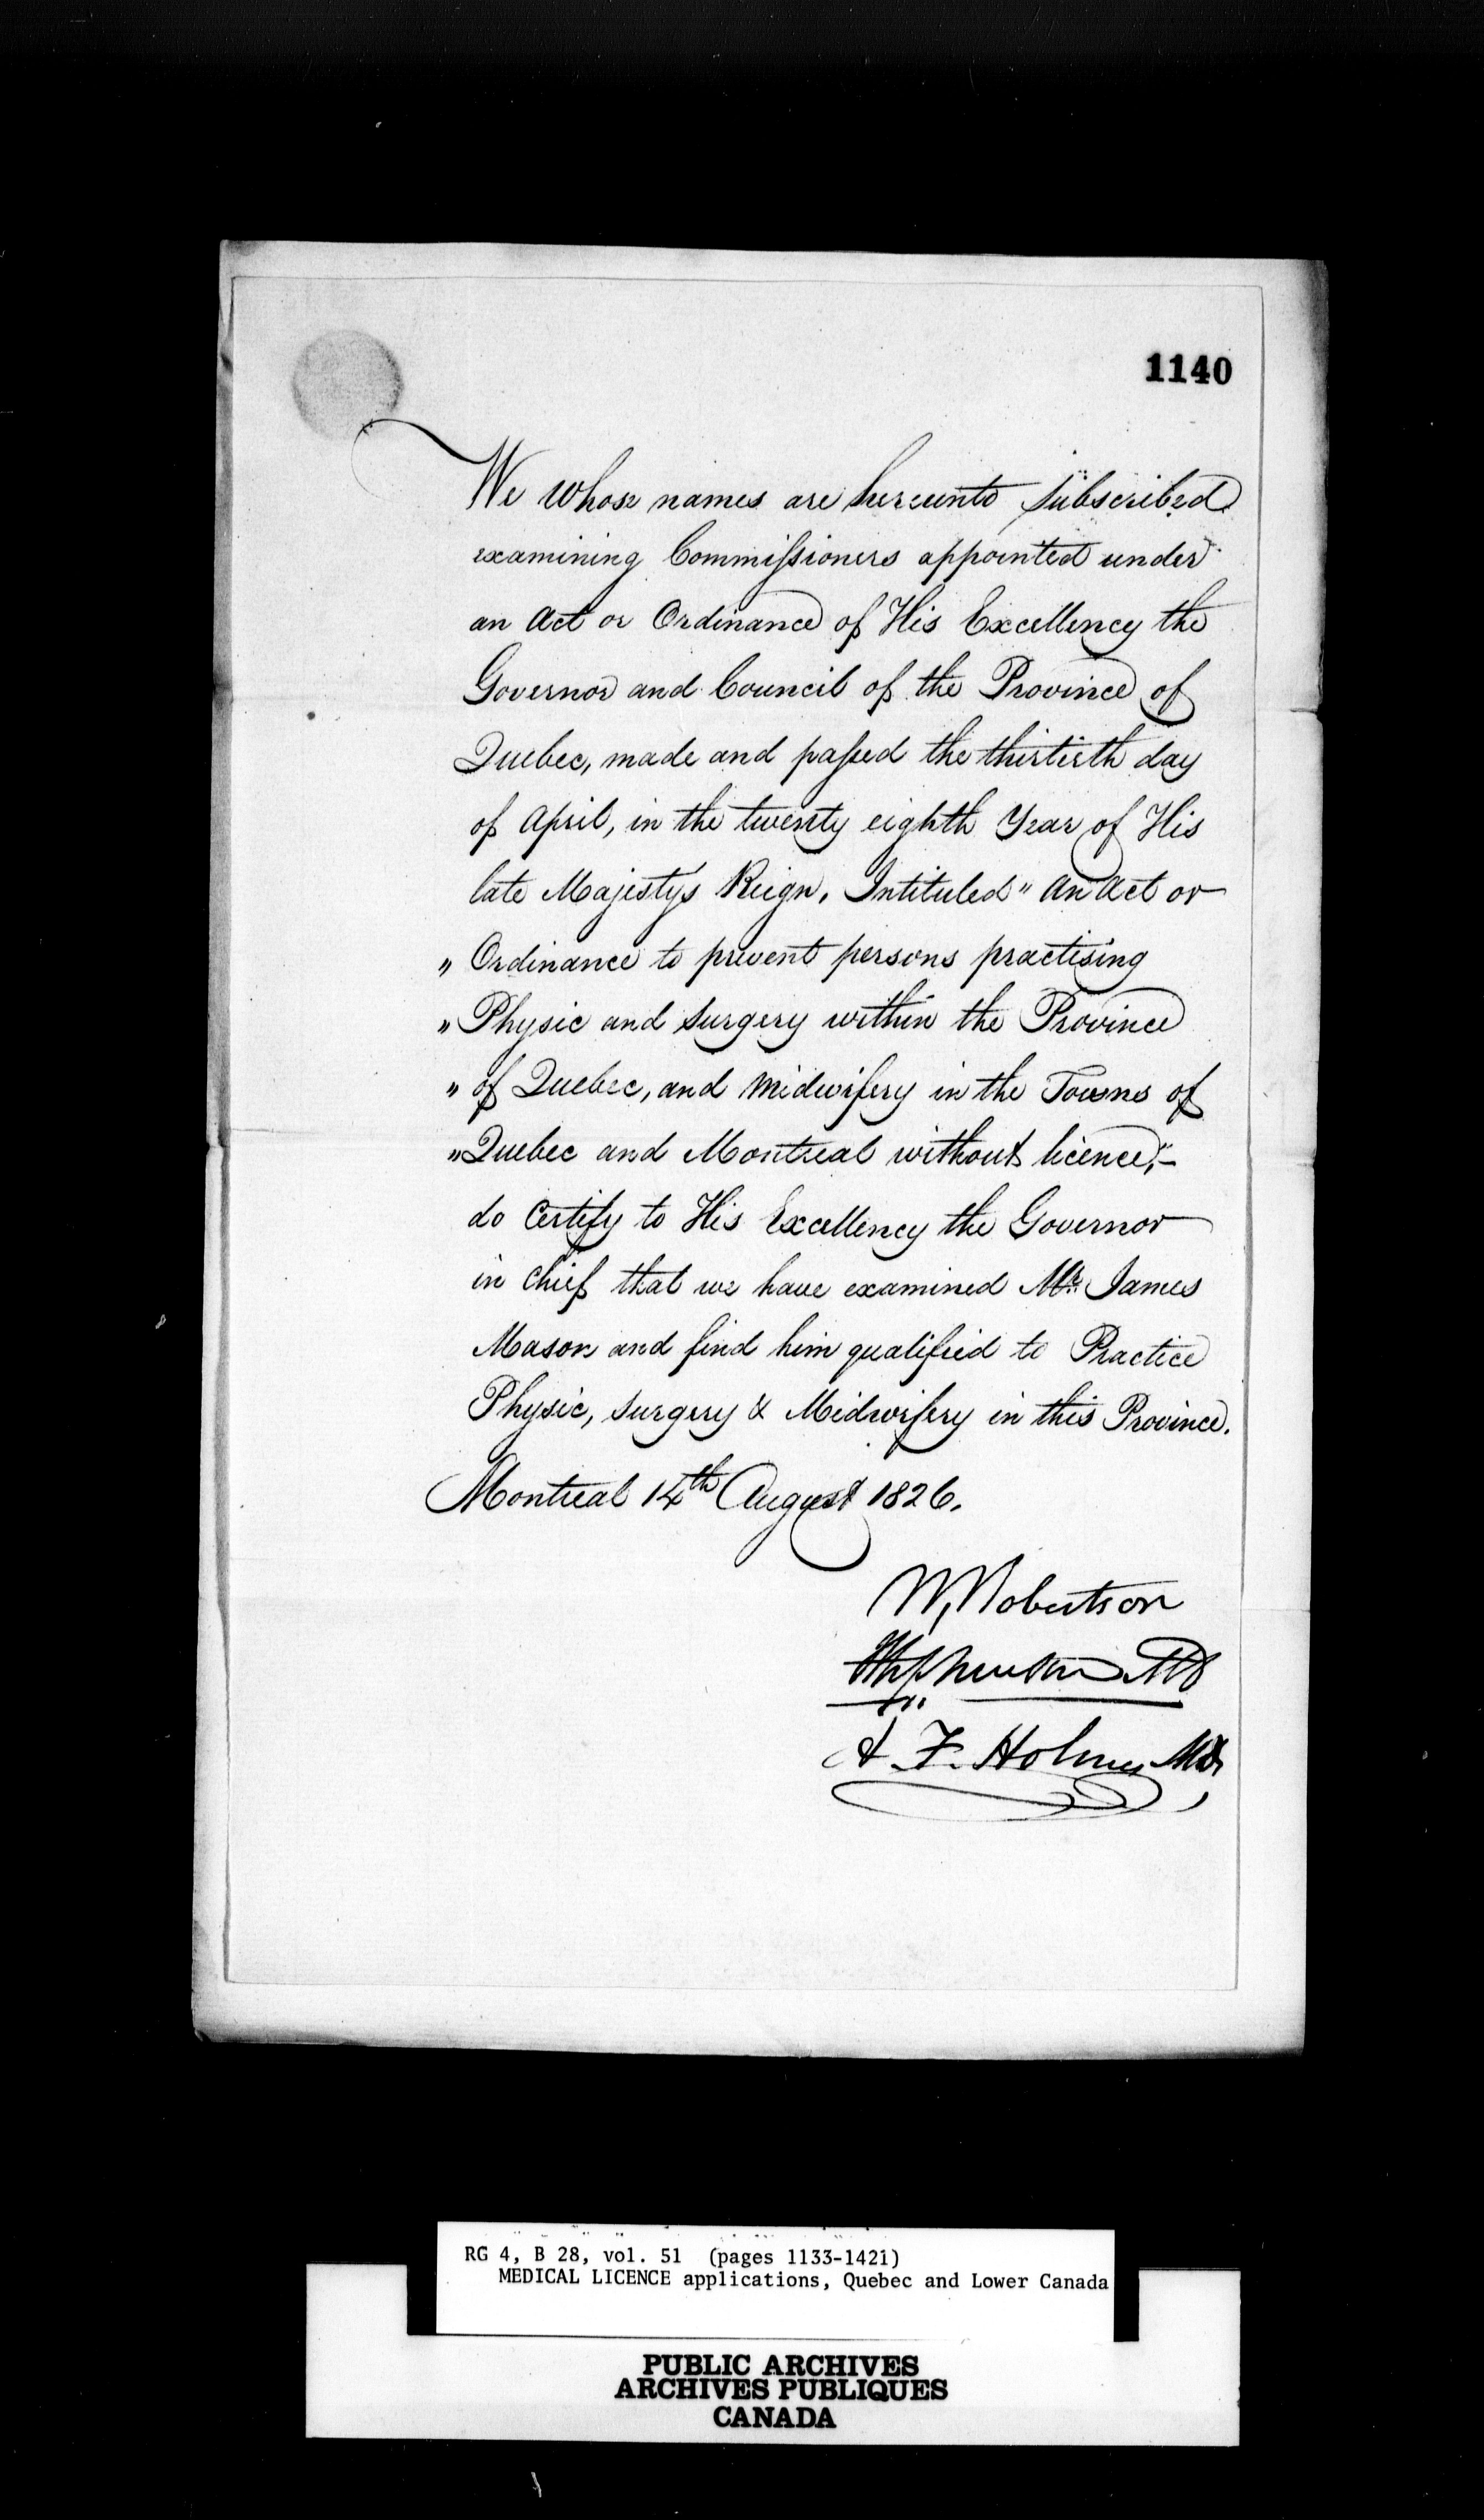 1140
We whose names are hereunto subscribed
examining Commissioners appointed under
an Act or Ordinance of His Excellency the
Governor and Council of the Province of
Quebec, made and passed the thirtieth day
of April, in the twenty eighth Year of His
late Majesty's Reign, Intituled " An Act or
" Ordinance to prevent persons practising
" Physic and Surgery within the Province
" of Quebec, and Midwifery in the Towns of
" Quebec and Montreal without licence,"-
do Certify to His Excellency the Governor
in Chief that we have examined Mr. James
Mason and find him qualified to Practice
Physic, Surgery & Midwifery in this Province.
Montreal 14th August 1826.
W, Robertson
Stephenson MD
A. F. Holmes MD,
RG 4, B 28, vol. 51 (pages 1133-1421)
MEDICAL LICENCE applications, Quebec and Lower Canada
PUBLIC ARCHIVES
ARCHIVES PUBLIQUES
CANADA